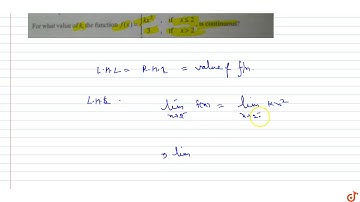 For what value of k, the function f(x) = kx² ; if x ≤ 2
3 , if x > 2 is continuous
L.H.L = R.H.L = value of f/n.
L.H.L.
lim f(x) = lim kx²
x→2⁻ x→2⁻
⇒ lim
doubtnut